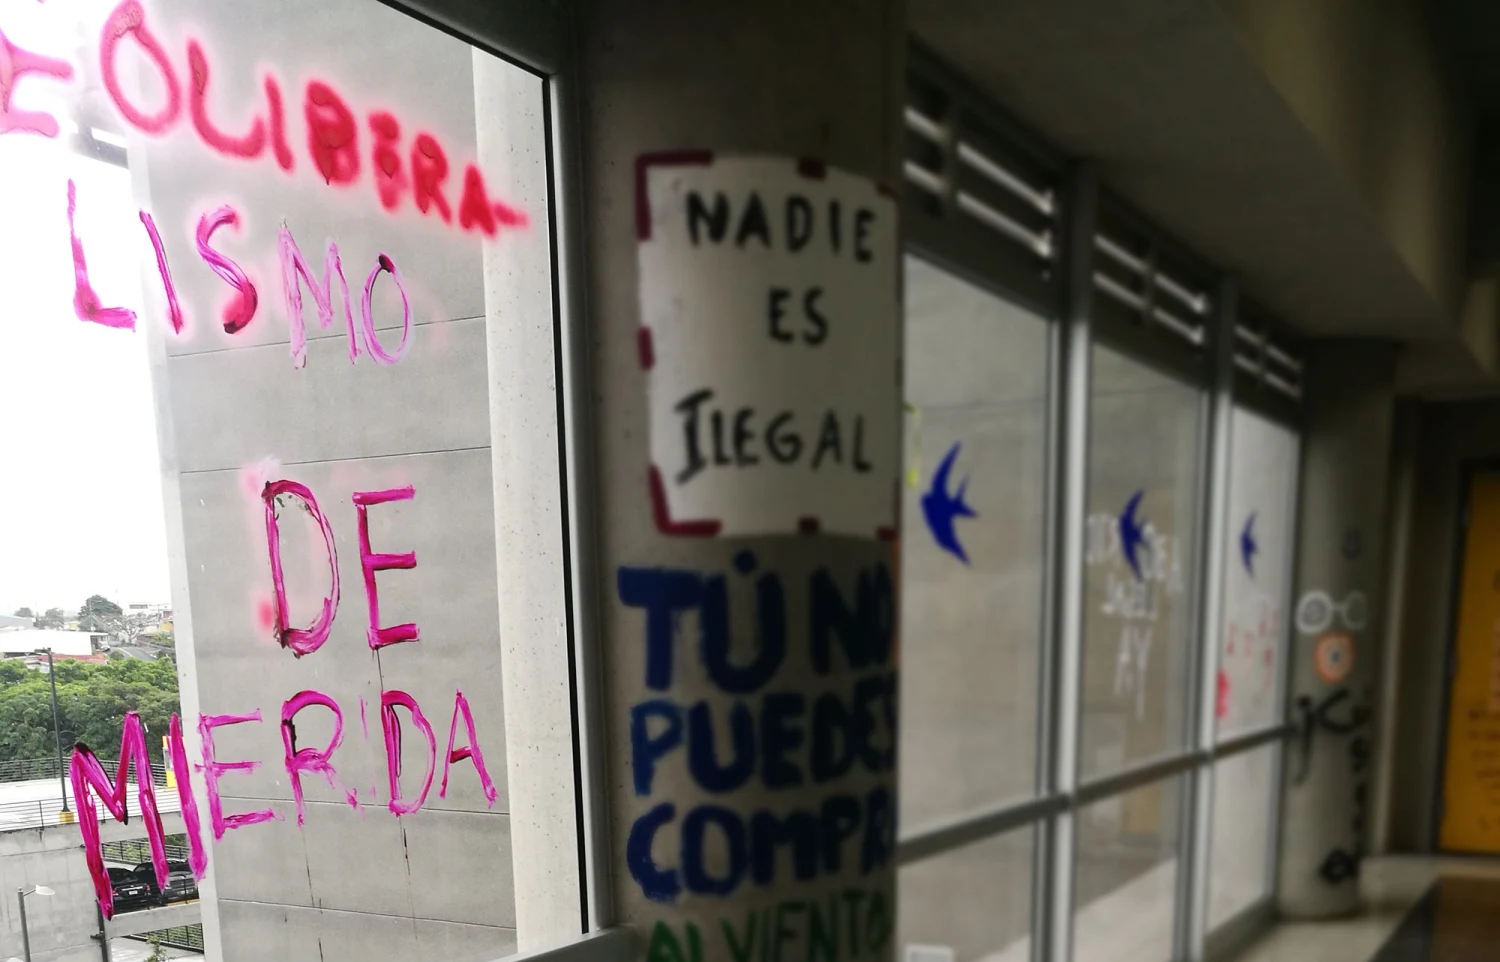 EOLIBERA-
LISMO
DE
MIERDA
NADIE
ES
ILEGAL
TÚ NO
PUEDES
COMPRA
AL VIENTO